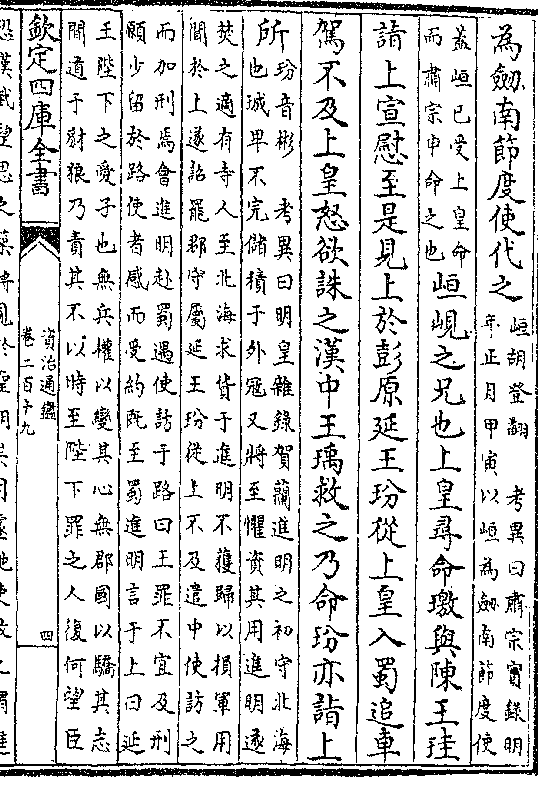 為劔南節度使代之峘胡登翻 考異曰肅宗實錄明
年正月甲寅以峘為劔南節度使
蓋峘已受上皇命
而肅宗申命之也峘峴之兄也上皇尋命璬與陳王珪
詣上宣慰至是見上於彭原延王玢從上皇入蜀追車
駕不及上皇怒欲誅之漢中王瑀救之乃命玢亦詣上
所玢音彬 考異曰明皇雜錄賀蘭進明之初守北海
也城卑不完儲積于外寇又將至懼資其用進明遂
焚之適有寺人至北海求貨于進明不獲歸以損軍用
聞於上遂詔罷郡守屬延王玢從上不及遣中使訪之
而加刑焉會進明赴蜀遇使訪于路曰王罪不宜及刑
願少留於路使者感而受約既至蜀進明言于上曰延
王陛下之愛子也無兵權以變其心無郡國以驕其志
間道于豺狼乃責其不以時至陛下罪之人復何望臣
欽定四庫全書
資治通鑑
卷二百十九
四